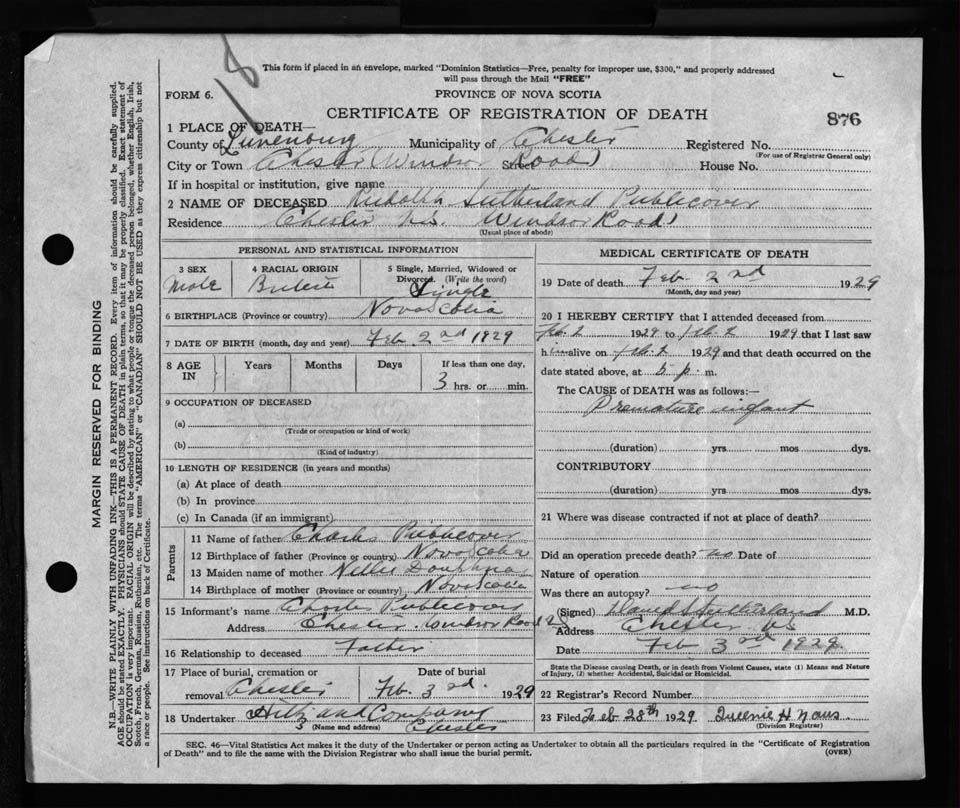 18
This form if placed in an envelope, marked "Dominion Statistics—Free, penalty for improper use, $300," and properly addressed
will pass through the Mail "FREE"
FORM 6.
PROVINCE OF NOVA SCOTIA
CERTIFICATE OF REGISTRATION OF DEATH
876
1 PLACE OF DEATH—
County of Lunenburg Municipality of Chester Registered No.
(For use of Registrar General only)
City or Town Chester (Windsor Street Road) House No.
If in hospital or institution, give name
2 NAME OF DECEASED Sutherland Publicover
Residence Chester N.S. Windsor Road)
(Usual place of abode)
PERSONAL AND STATISTICAL INFORMATION
3 SEX
Male
4 RACIAL ORIGIN
5 Single, Married, Widowed or
Divorced (Write the word)
Single
6 BIRTHPLACE (Province or country) Nova Scotia
7 DATE OF BIRTH (month, day and year) Feb. 2nd 1929
8 AGE IN
Years
Months
Days
If less than one day,
3 hrs. or min.
9 OCCUPATION OF DECEASED
(a)
(Trade or occupation or kind of work)
(b)
(Kind of industry)
10 LENGTH OF RESIDENCE (in years and months)
(a) At place of death
(b) In province
(c) In Canada (if an immigrant)
Parents
11 Name of father Charles Publicover
12 Birthplace of father (Province or country) Nova Scotia
13 Maiden name of mother Nellie
14 Birthplace of mother (Province or country) Nova Scotia
15 Informant's name Charles Publicover
Address Chester. Windsor Road
16 Relationship to deceased Father
17 Place of burial, cremation or
removal Chester
Date of burial
Feb. 3rd. 1929
18 Undertaker Hiltz and Company
(Name and address) Chester
MEDICAL CERTIFICATE OF DEATH
19 Date of death Feb. 2nd 1929
(Month, day and year)
20 I HEREBY CERTIFY that I attended deceased from
Feb. 2 1929 to Feb. 2 1929 that I last saw
him alive on Feb. 2 1929 and that death occurred on the
date stated above, at 5 p. m.
The CAUSE of DEATH was as follows:—
Premature infant
(duration) yrs mos dys.
CONTRIBUTORY
(duration) yrs mos dys.
21 Where was disease contracted if not at place of death?
Did an operation precede death? no Date of
Nature of operation
Was there an autopsy? no
(Signed) Sutherland M.D.
Address Chester NS
Date Feb 3rd 1929
State the Disease causing Death, or in death from Violent Causes, state (1) Means and Nature
of Injury, (2) whether Accidental, Suicidal or Homicidal.
22 Registrar's Record Number
23 Filed Feb 28th 1929 Queenie H Naus
(Division Registrar)
SEC. 46—Vital Statistics Act makes it the duty of the Undertaker or person acting as Undertaker to obtain all the particulars required in the "Certificate of Registration
of Death" and to file the same with the Division Registrar who shall issue the burial permit.
(OVER)
MARGIN RESERVED FOR BINDING
N.B.—WRITE PLAINLY WITH UNFADING INK—THIS IS A PERMANENT RECORD. Every item of information should be carefully supplied.
AGE should be stated EXACTLY. PHYSICIANS should STATE CAUSE OF DEATH in plain terms, so that it may be properly classified. Exact statement of
OCCUPATION is very important. RACIAL ORIGIN will be described by stating to what people or tongue the deceased person belonged, whether English, Irish,
Scotch, French, German, Russian, Ruthenian, etc. The terms "AMERICAN" or "CANADIAN" SHOULD NOT BE USED as they express citizenship but not
a race or people. See instructions on back of Certificate.